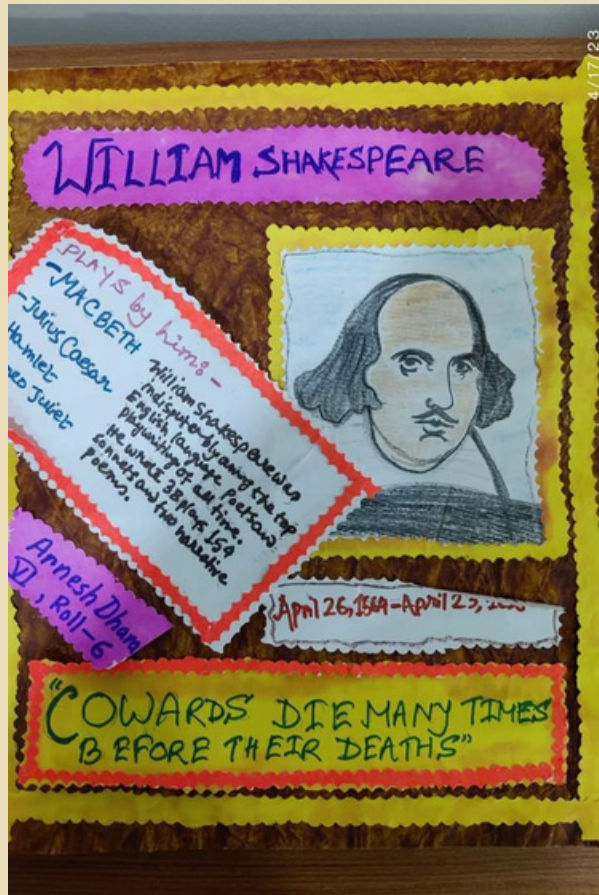 4/17/23
WILLIAM SHAKESPEARE
PLAYS by him:-
-MACBETH
-Julius Caesar
Hamlet
Juliet
William Shakespeare was
indisputably among the top
English language poets
playwriting of all time.
He wrote 38 plays 154
sonnets and two narrative
poems.
Annesh Dham
VI, Roll-6
April 26, 1564-April 23,
"COWARDS DIE MANY TIMES
BEFORE THEIR DEATHS"